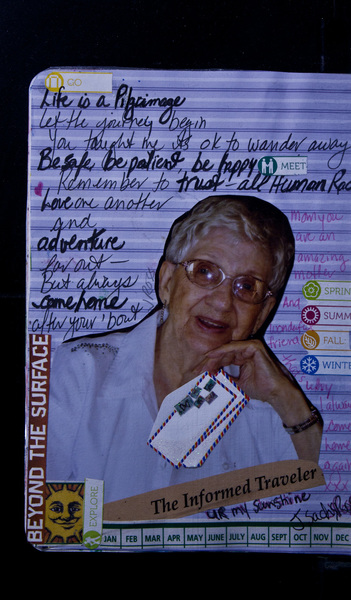 GO
Life is a Pilgrimage
Let the journey begin
You taught me its ok to wander away
Be safe, be patient, be happy
MEET
Remember to trust - all Human Rac
Love one another
and
adventure
far out -
But always
come home
after your 'bout
mom you
are an
amazing
mother
And
wonderful
friend
SPRIN
SUMM
FALL
WINT
I always
come
home
again
xxx
BEYOND THE SURFACE
EXPLORE
The Informed Traveler
ur my sunshine
JAN FEB MAR APR MAY JUNE JULY AUG SEPT OCT NOV DEC